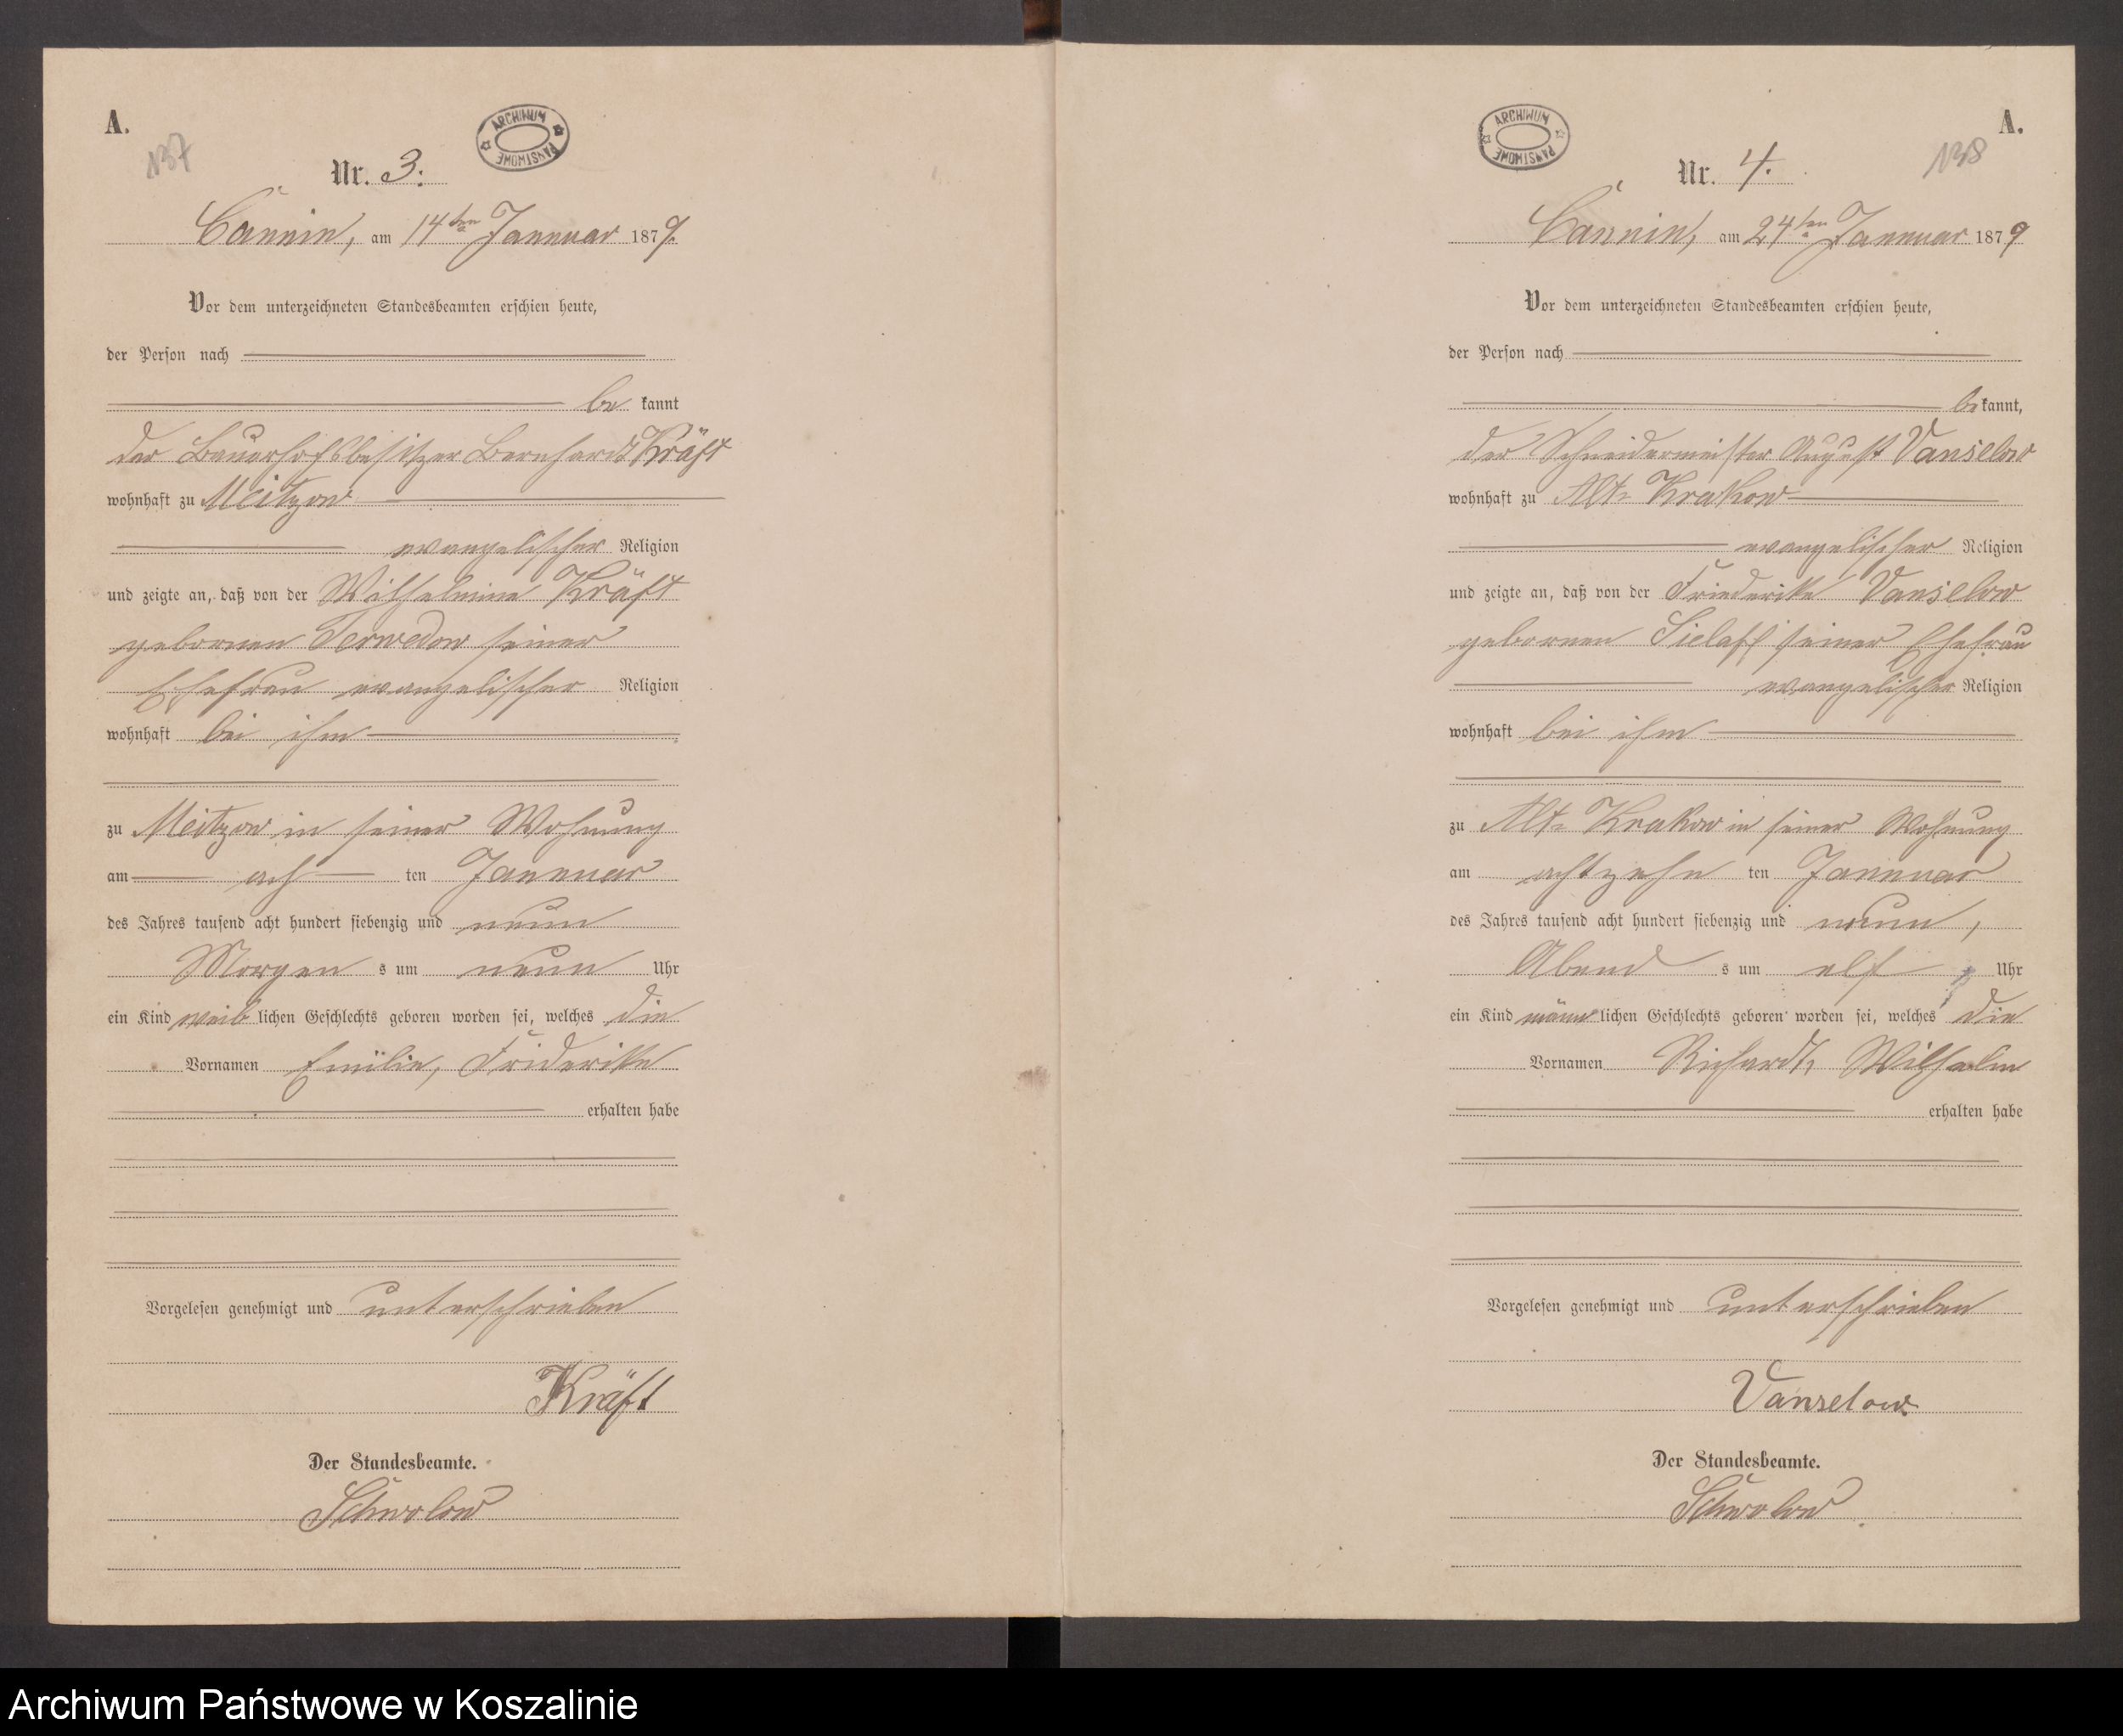 A.
137
ARCHIWUM PAŃSTWOWE
Nr. 3.
Cannin, am 14ten Januar 1879.
Vor dem unterzeichneten Standesbeamten erschien heute,
der Person nach
be kannt
der Bauerhofsbesitzer Bernhardt Kräft
wohnhaft zu Meitzow
evangelischer Religion
und zeigte an, daß von der Wilhelmine Kräft
gebornen Terwedow seiner
Ehefrau evangelischer Religion
wohnhaft bei ihm
zu Meitzow in seiner Wohnung
am ach ten Januar
des Jahres tausend acht hundert siebenzig und neun
Morgen s um neun Uhr
ein Kind weib lichen Geschlechts geboren worden sei, welches die
Vornamen Emilie, Friderikke
erhalten habe
Vorgelesen genehmigt und unterschrieben
Kräft
Der Standesbeamte.
Schwolow
A.
138
ARCHIWUM PAŃSTWOWE
Nr. 4.
Cannin, am 24ten Januar 1879
Vor dem unterzeichneten Standesbeamten erschien heute,
der Person nach
be kannt,
der Schneidermeister August Vanselow
wohnhaft zu Alt-Krakow
evangelischer Religion
und zeigte an, daß von der Friederikke Vanselow
gebornen Sielaff seiner Ehefrau
evangelischer Religion
wohnhaft bei ihm
zu Alt-Krakow in seiner Wohnung
am achtzehn ten Januar
des Jahres tausend acht hundert siebenzig und neun,
Abend s um elf Uhr
ein Kind männ lichen Geschlechts geboren worden sei, welches die
Vornamen Richardt, Wilhelm
erhalten habe
Vorgelesen genehmigt und unterschrieben
Vanselow.
Der Standesbeamte.
Schwolow
Archiwum Państwowe w Koszalinie